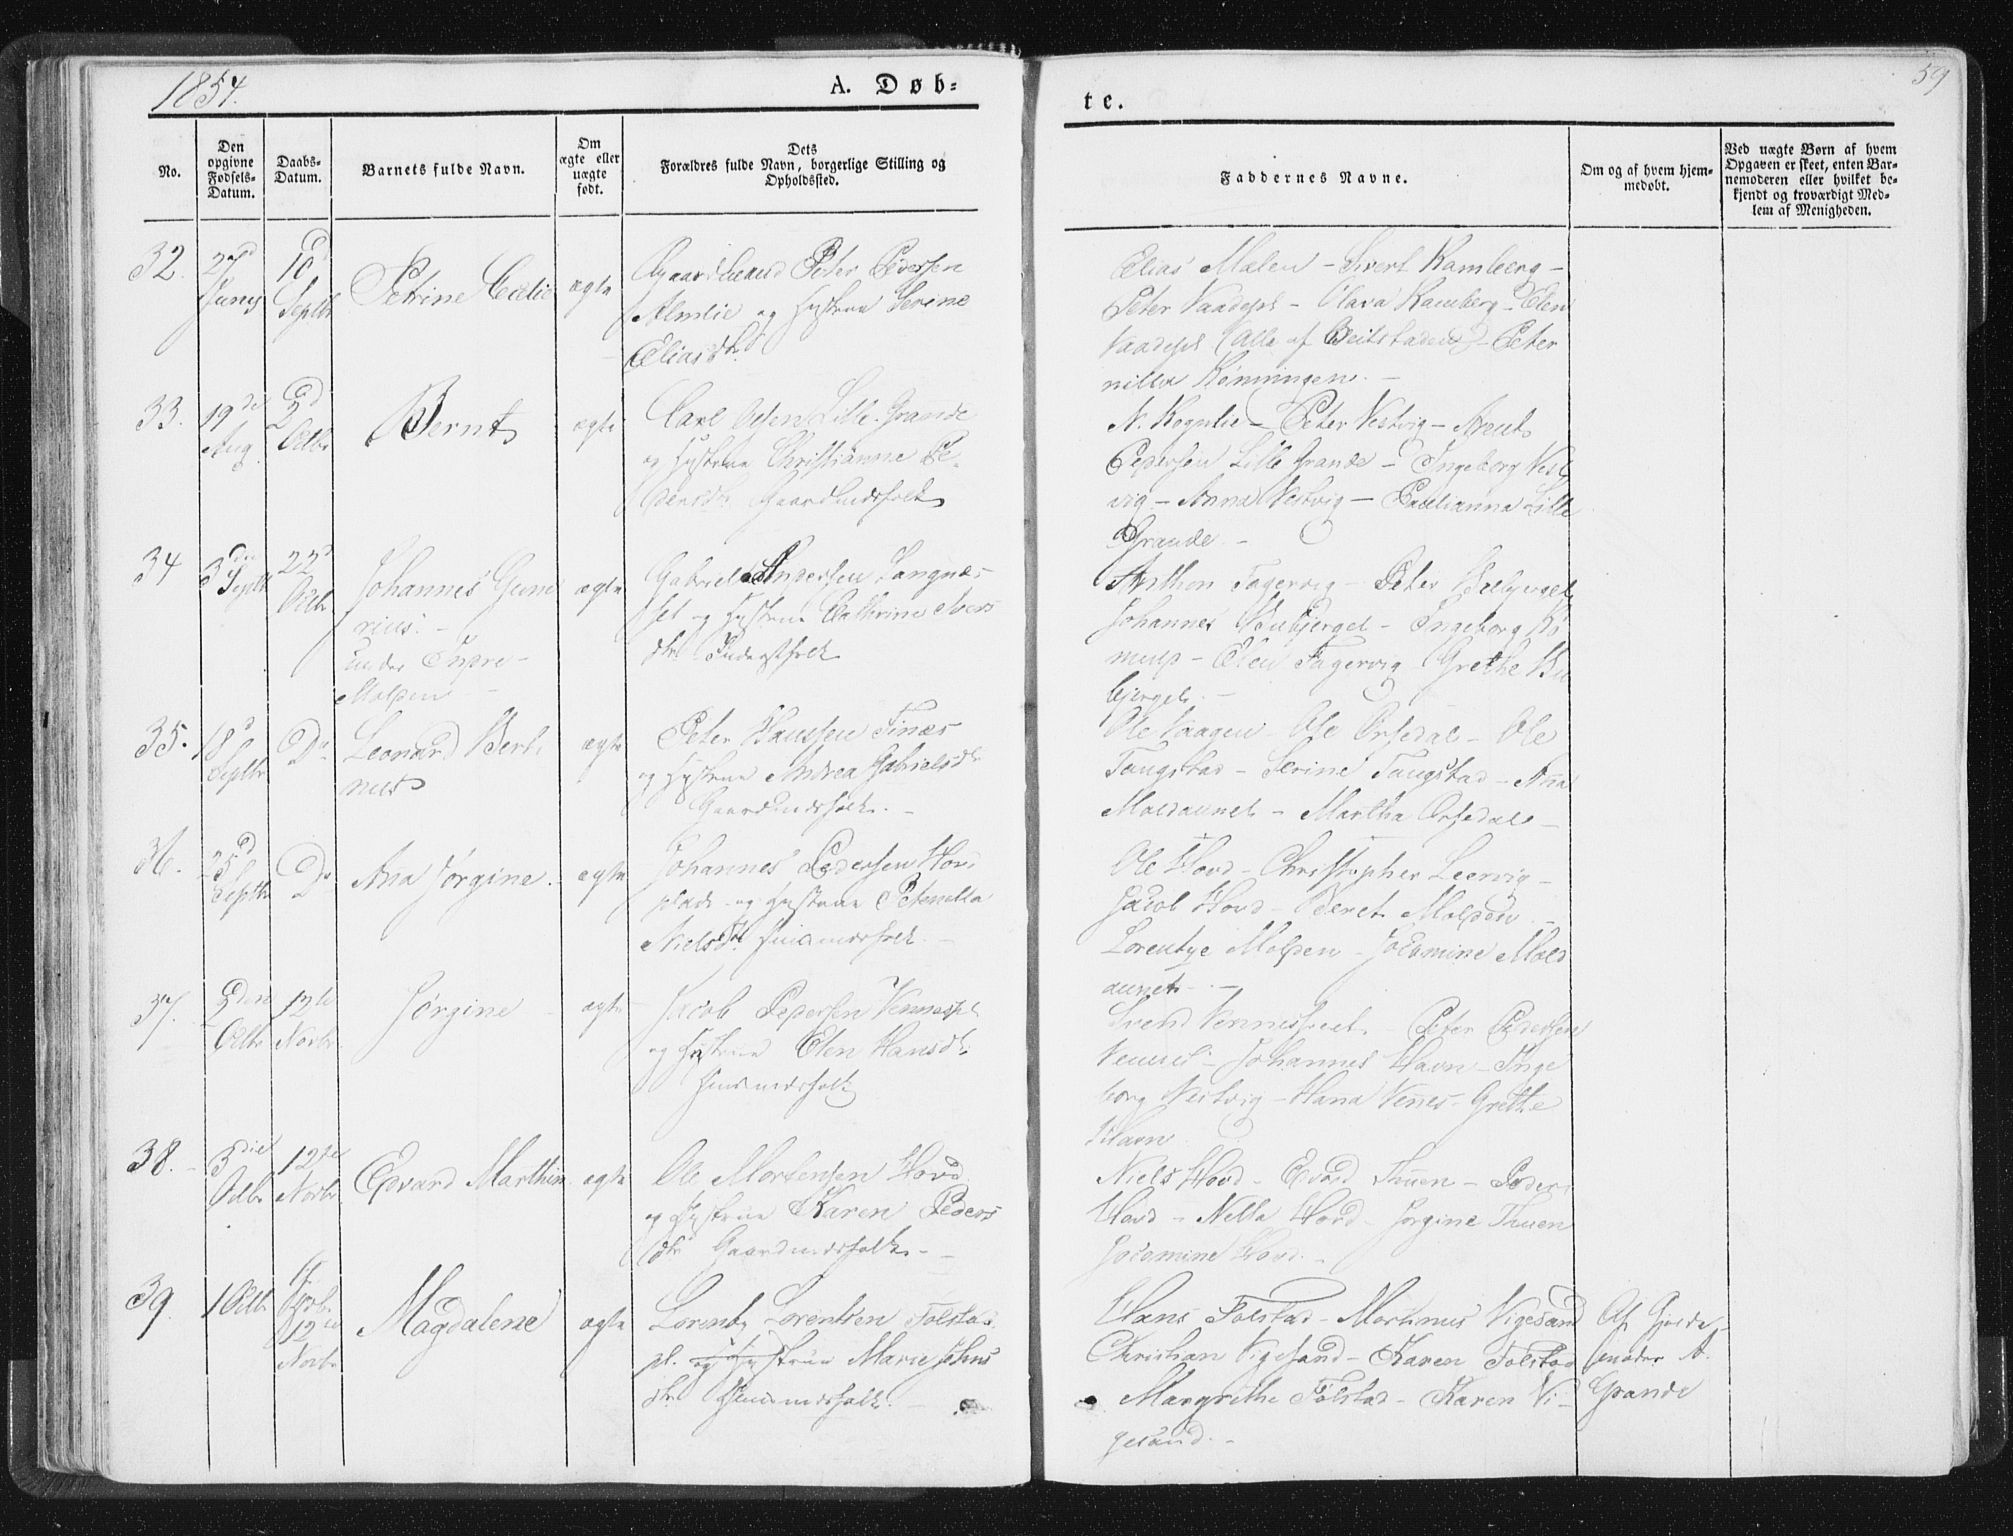 1854.
A. Døb-
te.
59
No.
Den opgivne Fødsels-Datum.
Daabs-Datum.
Barnets fulde Navn.
Om ægte eller uægte født.
Dets Forældres fulde Navn, borgerlige Stilling og Opholdssted.
Faddernes Navne.
Om og af hvem hjem-medøbt.
Ved uægte Børn af hvem Opgaven er skeet, enten Bar-nemoderen eller hvilket be-kjendt og troværdigt Med-lem af Menigheden.
32. 27d 10d
Juny Septbr Petrine Cecelie ægte
Gaardmand Peter Pedersen
Almlie og Hustrue Serine
Eliasdtr.
Elias Malen - Sivert Ramberg -
Peter Vaadespl - Olava Ramberg - Elen
Vaadespl (Alle af Beitstaden) - Peter
nilla Rønningen. -
33. 19de 2d
Aug. Octbr Bernt ægte
Carl Olsen Lille-Grande
og Hustrue Christianne Pe-
dersdtr Gaardmdsfolk
N. Rognlie - Peter Vestvig - Arnt
Pedersen Lille Grande - Ingeborg Vest
vig - Anna Vestvig - Paulianna Lille
Grande -
34 3die 22d
Septbr Octbr Johannes Gune
rius. -
ægte
Gabriel Andersen Langnæs-
og Hustrue Cathrine Ivers
dtr Inderstfolk
Anthon Fagervig - Peter
Johannes - Ingeborg
- Elen Fagervig Grethe
35. 18d Do
Septbr Leonard Bert-
nus
ægte
Peter Hanssen Finæs
og Hustrue Andrea Gabrielsdtr
Gaardmdsfolk. -
Ole Vaagen - Ole Orsedal - Ole
Taugstad - Serine Taugstad - Ana
Maldaunet - Martha Orsedal -
36. 25d Do
Septbr Ana Jørgine. ægte
Johannes Pedersen Hovs
plads og Hustrue Petenella
Nielsdtr. Husmdsfolk. -
Ole Hovd - Christopher Leervig -
Jacob Hovd - Beret Malden -
Lorentze - Jocomine Mald
aunet -
37. 2den 12te
Octbr Novbr Jørgine ægte
Jacob Pedersen Vennespl
og Hustrue Elen Hansdtr
Husmandsfolk
Svend - Peter Pedersen
- Johannes Havn - Inge
borg Vestvig - Hana Vennes - Grethe
Havn
38. 3die 12te
Octbr Novbr Edvard Marthin ægte
Ole Mortensen Hovd
og Hustrue Karen Peders
dtr Gaardmdsfolk. -
Niels Hovd - Edvard Thuen - Peder
Hovd - Nella Hovd - Jørgine Thuen
Jocomine Hovd. -
39. 1 Octbr
12te
Novbr Magdalene ægte
Lorentz Lorentsen Folstad
pl. og Hustrue Marie Johns
dtr Husmandsfolk. -
Hans Folstad - Martinus Vigesand
Christian Vigesand - Karen Folstad
Margrethe Folstad - Karen Vi-
gesand. -
Af Gjorde-
moder A.
Grande